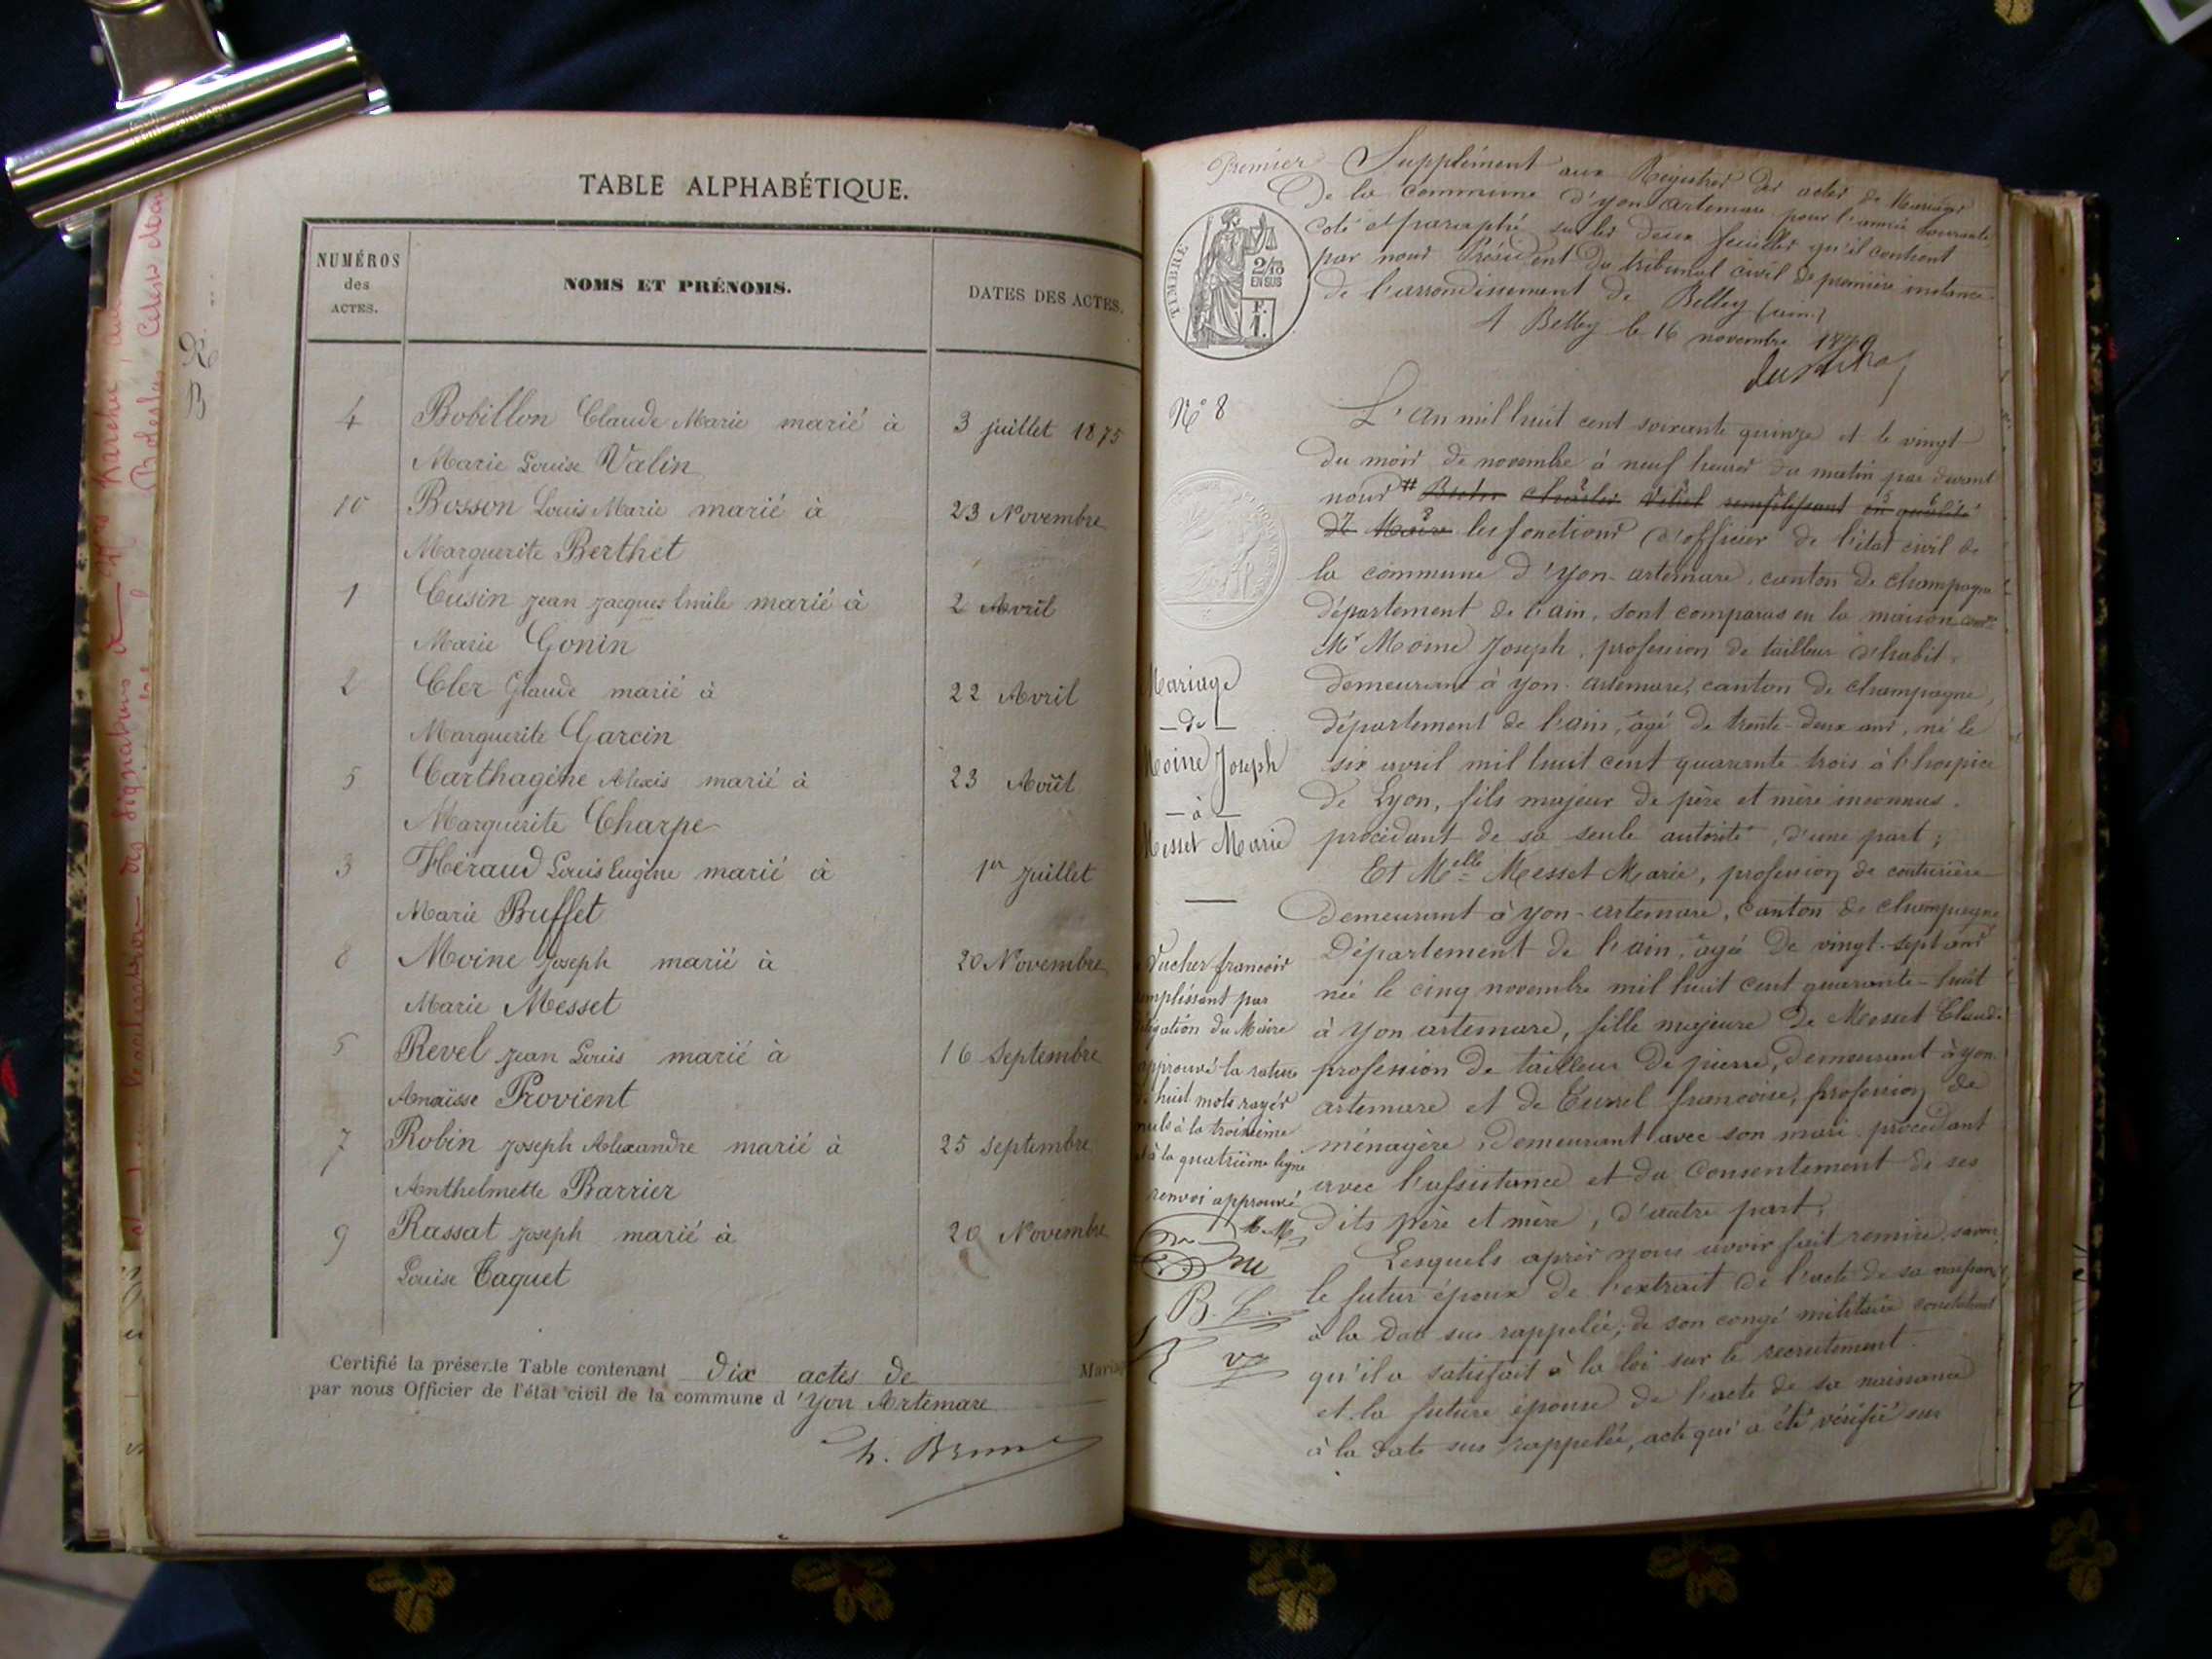 TABLE ALPHABÉTIQUE.
NUMÉROS des ACTES.
NOMS ET PRÉNOMS.
DATES DES ACTES.
4 Bobillon Claude Marie marié à 3 juillet 1875
Marie Louise Valin
10 Bosson Louis Marie marié à 23 Novembre
Marguerite Berthet
1 Cusin Jean Jacques Emile marié à 2 Avril
Marie Gonin
2 Cler Claude marié à 22 Avril
Marguerite Garcin
5 Carthagène Alexis marié à 23 Août
Marguerite Charpe
3 Héraud Louis Eugène marié à 1er Juillet
Marie Buffet
8 Moine Joseph marié à 20 Novembre
Marie Messet
Revel Jean Louis marié à 16 Septembre
Anaïsse Provient
7 Robin Joseph Alexandre marié à 25 Septembre
Anthelmette Barrier
9 Rassat Joseph marié à 20 Novembre
Louise Taquet
Certifié la présente Table contenant dix actes de Mariage
par nous Officier de l'état civil de la commune d'Yon Artemare
Premier Supplément aux Registres des actes de Mariages
De la commune d'yon artemare pour l'année courante
coté et paraphé sur les deux feuilles qu'il contient
par nous Président du tribunal civil de première instance
de l'arrondissement de Belley (ain.)
A Belley le 16 novembre
TIMBRE
2/10
EN SUS
F.
1.
N° 8
L'An mil huit cent soixante quinze et le vingt
du mois de novembre à neuf heures du matin par devant
nous # remplissant en qualité
de Maire les fonctions d'officier de l'état civil de
la commune d'yon-artemare, canton de champagne
département de l'ain, sont comparus en la maison comne
Mr Moine Joseph, profession de tailleur d'habit,
demeurant à yon-artemare, canton de champagne,
département de l'ain, âgé de trente-deux ans, né le
six avril mil huit cent quarante trois à l'hospice
de Lyon, fils majeur de père et mère inconnus.
procédant de sa seule autorité, d'une part ;
Et Melle Messet Marie, profession de couturière
demeurant à yon-artemare, canton de champagne
Département de l'ain, âgée de vingt-sept ans
née le cinq novembre mil huit cent quarante-huit
à yon artemare, fille majeure de Messet Claude
profession de tailleur de pierre, demeurant à yon
artemare et de françoise, profession de
ménagère, demeurant avec son mari, procédant
avec l'assistance et du Consentement de ses
dits père et mère, d'autre part,
Lesquels après nous avoir fait remise, savoir,
le futur époux de l'extrait de l'acte de sa naissance
à la date sus rappelée, de son congé militaire constatant
qu'il a satisfait à la loi sur le recrutement.
et la future épouse de l'acte de sa naissance
à la date sus rappelée, acte qui a été vérifié sur
Mariage
- de -
Moine Joseph
- à -
Messet Marie
Ducher françois
remplissant par
délégation du Maire
approuvé la rature
de huit mots rayés
nuls à la troisième
et à la quatrième ligne
renvoi approuvé
M. M.
B. L.